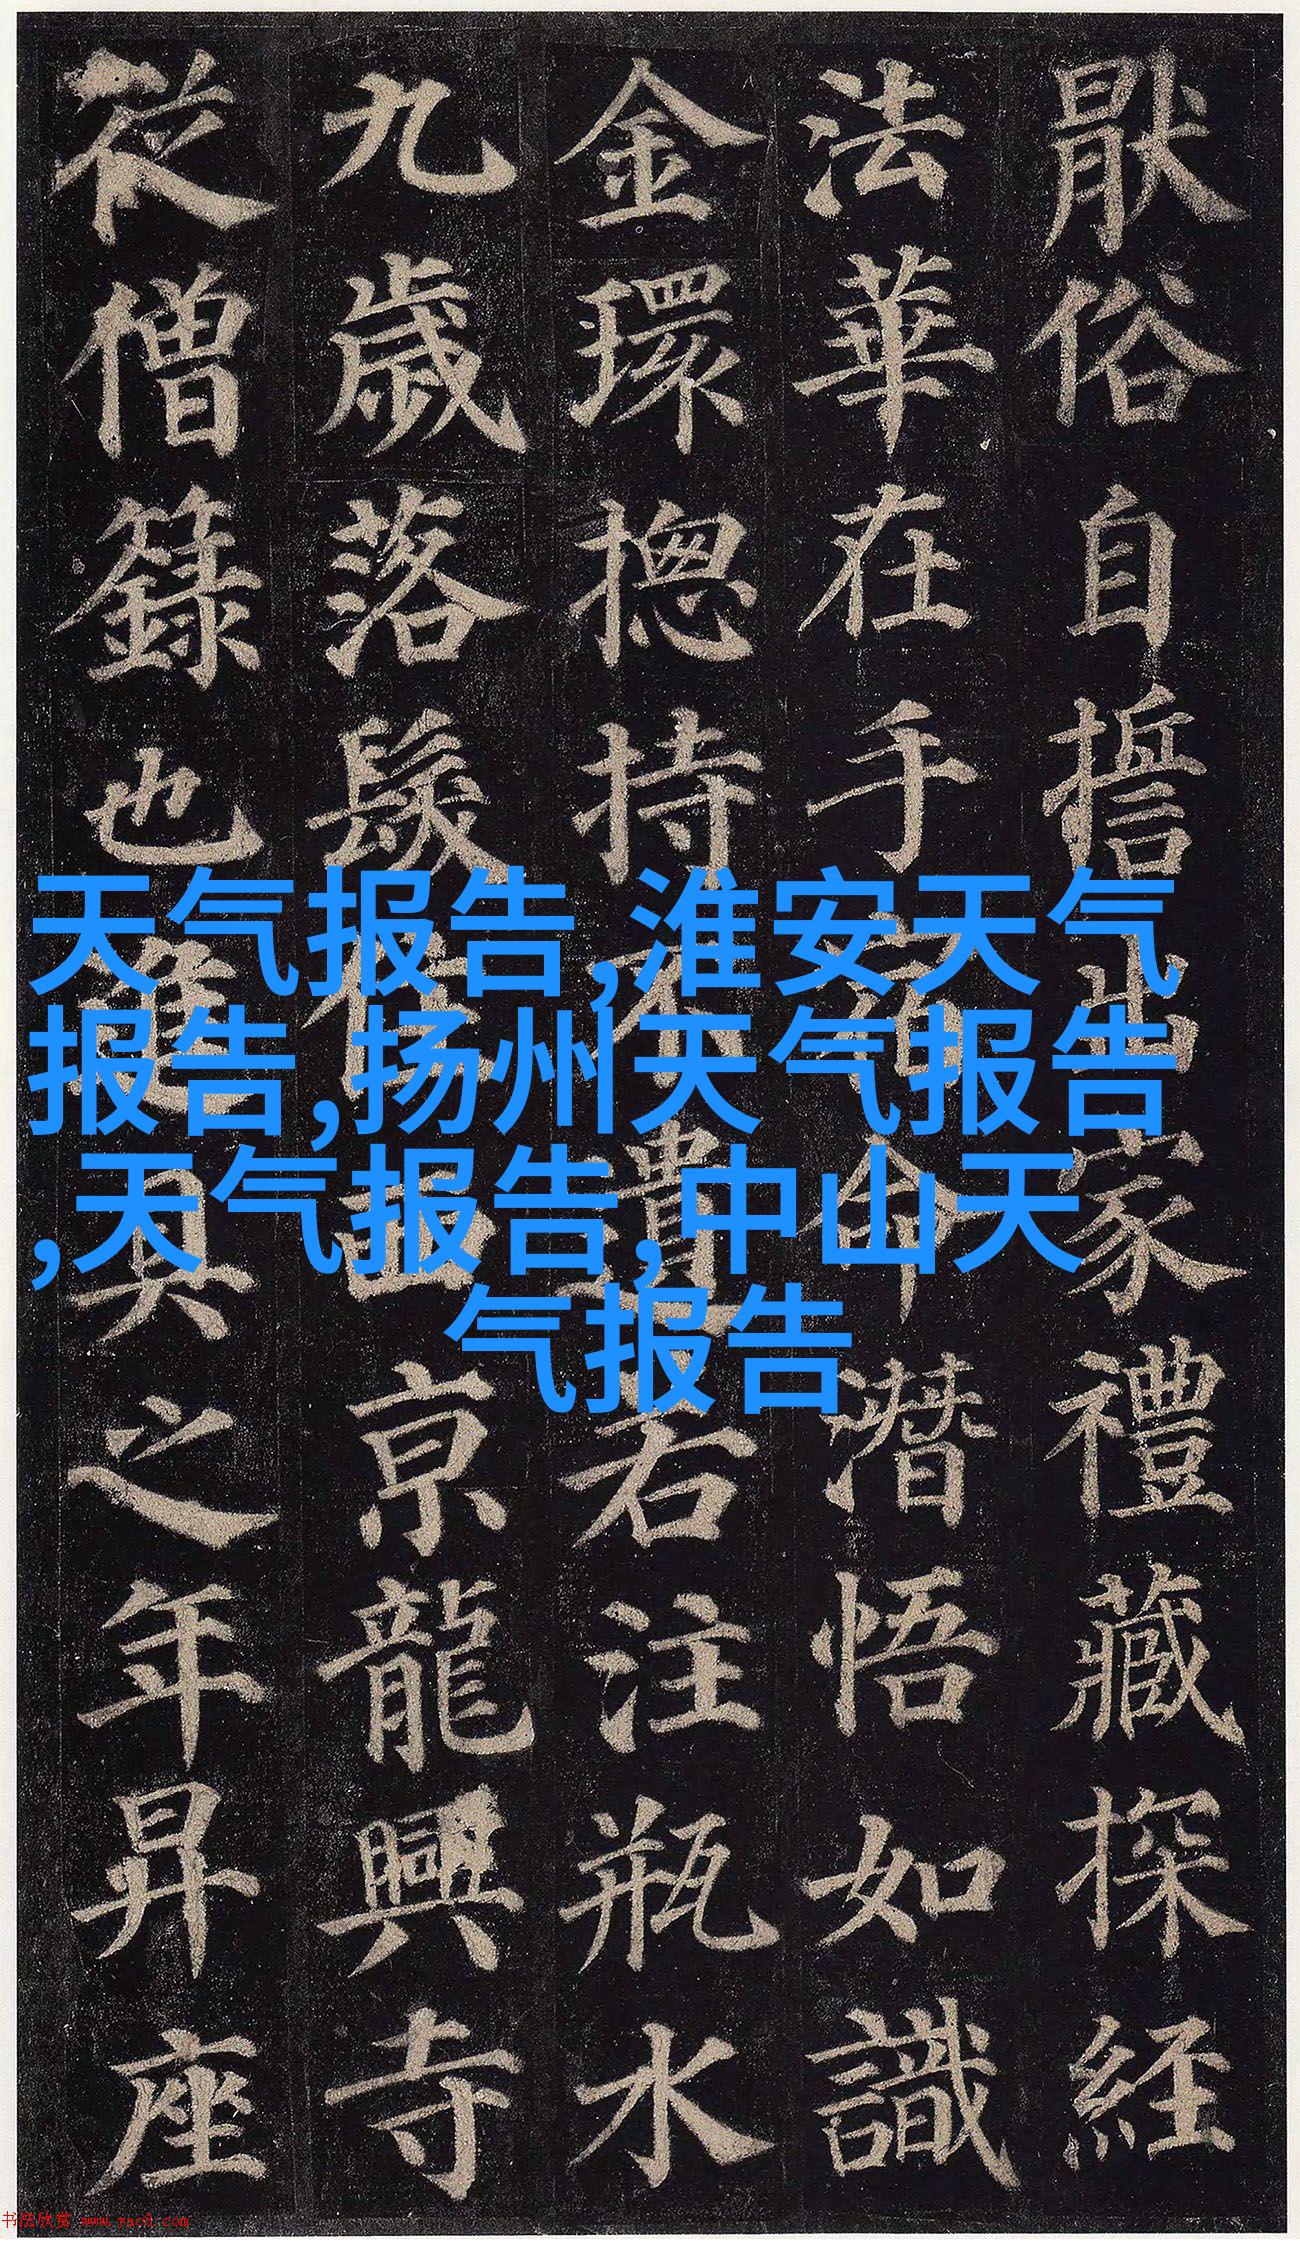 猒俗自誓出家禮藏探經
法華在手宿命潛悟如識
金環揔持不遺右注瓶水
九歲落髮住西京龍興寺
從僧籙也進具之年昇座
天气报告,淮安天气
报告,扬州天气报告
,天气报告,中山天
气报告
书法欣赏 www.yac8.com